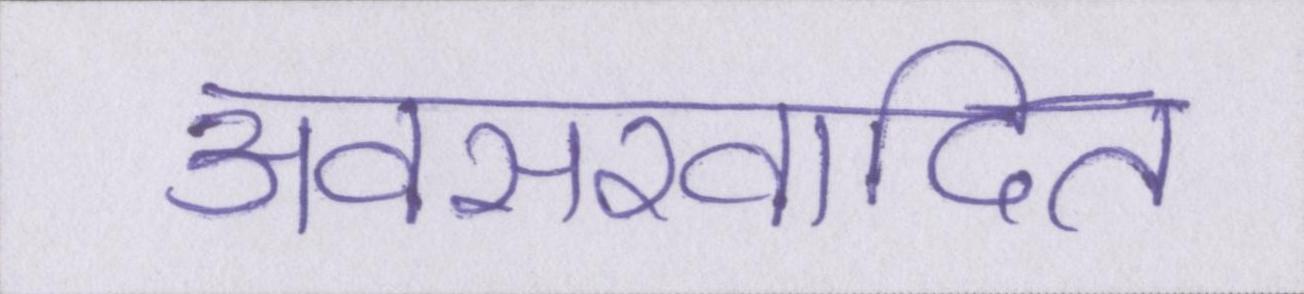 अवसरवादित